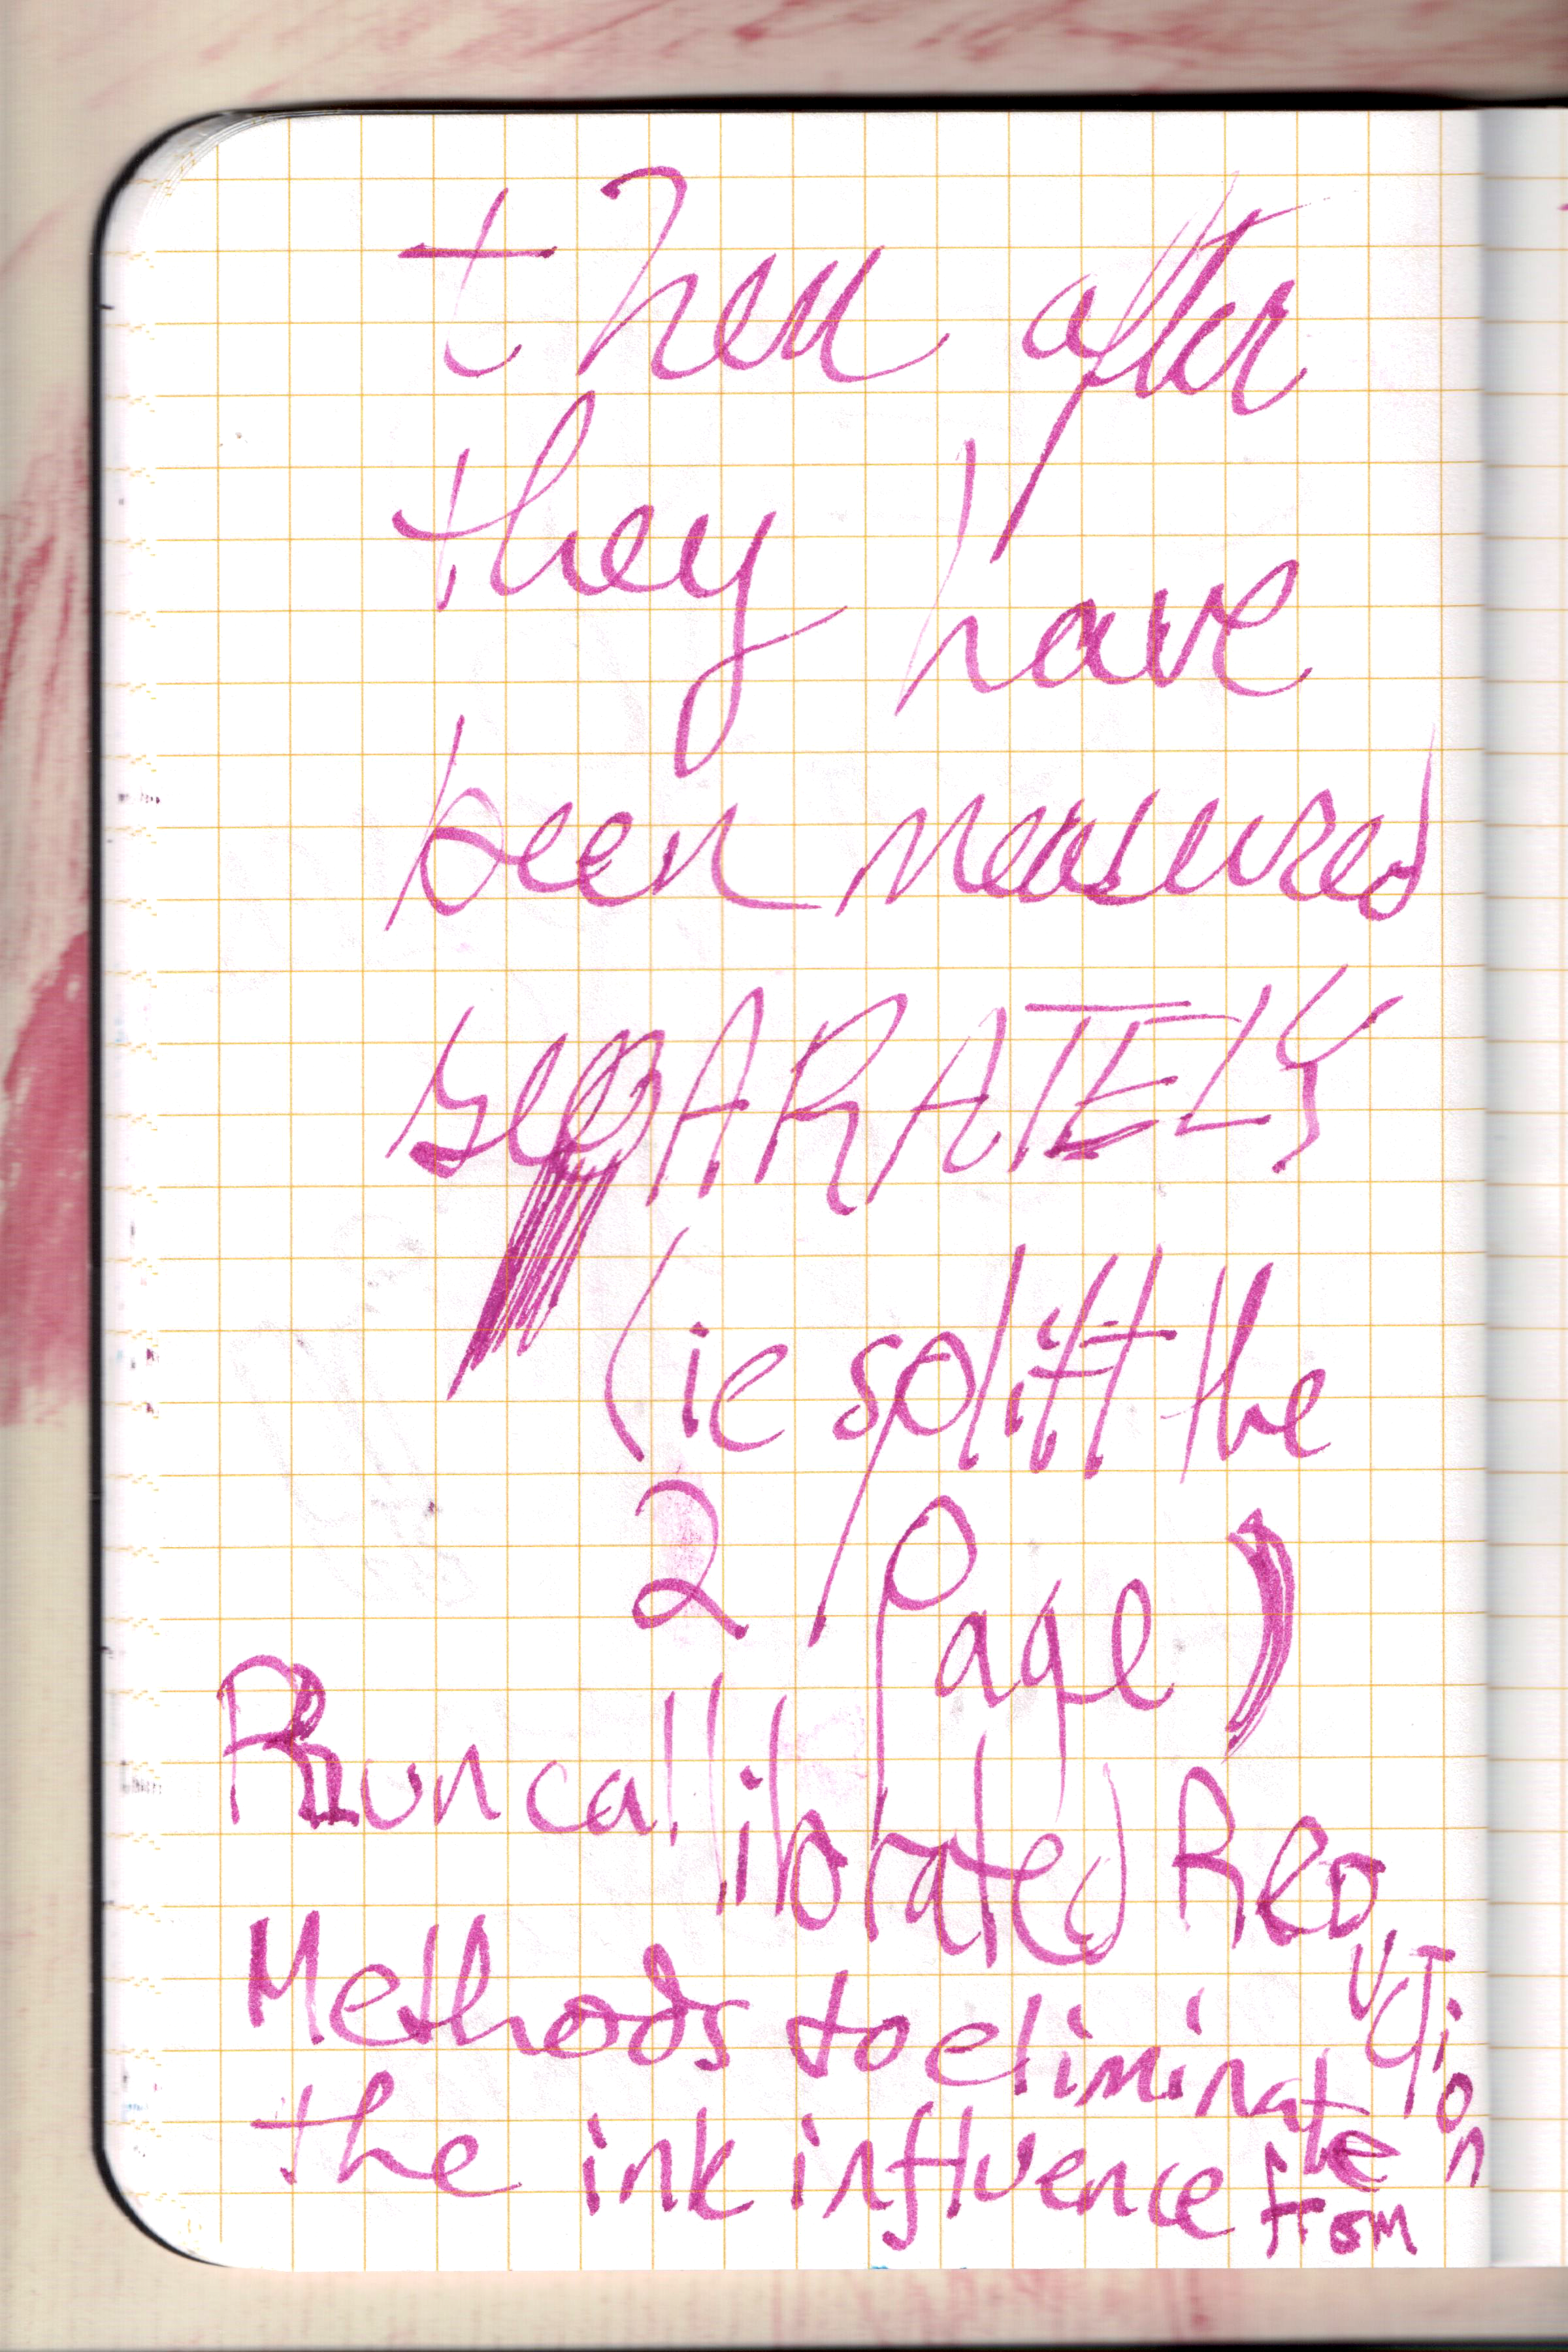 then after
they have
been measured
sepARATELY
(ie splitt the
2 Page)
Run callibrated ReductTion
Methods to eliminate
the ink influence from